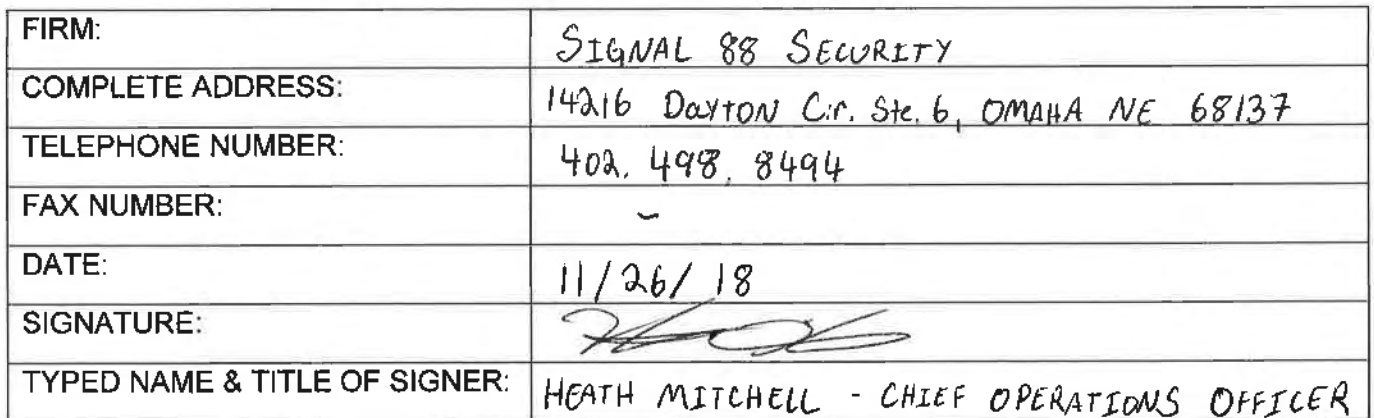 FIRM: SIGNAL 88 SECURITY
COMPLETE ADDRESS: 14216 DAYTON Cir. Ste. 6, OMAHA NE 68137
TELEPHONE NUMBER: 402. 498. 8494
FAX NUMBER: -
DATE: 11/26/18
SIGNATURE:
TYPED NAME & TITLE OF SIGNER: HEATH MITCHELL - CHIEF OPERATIONS OFFICER